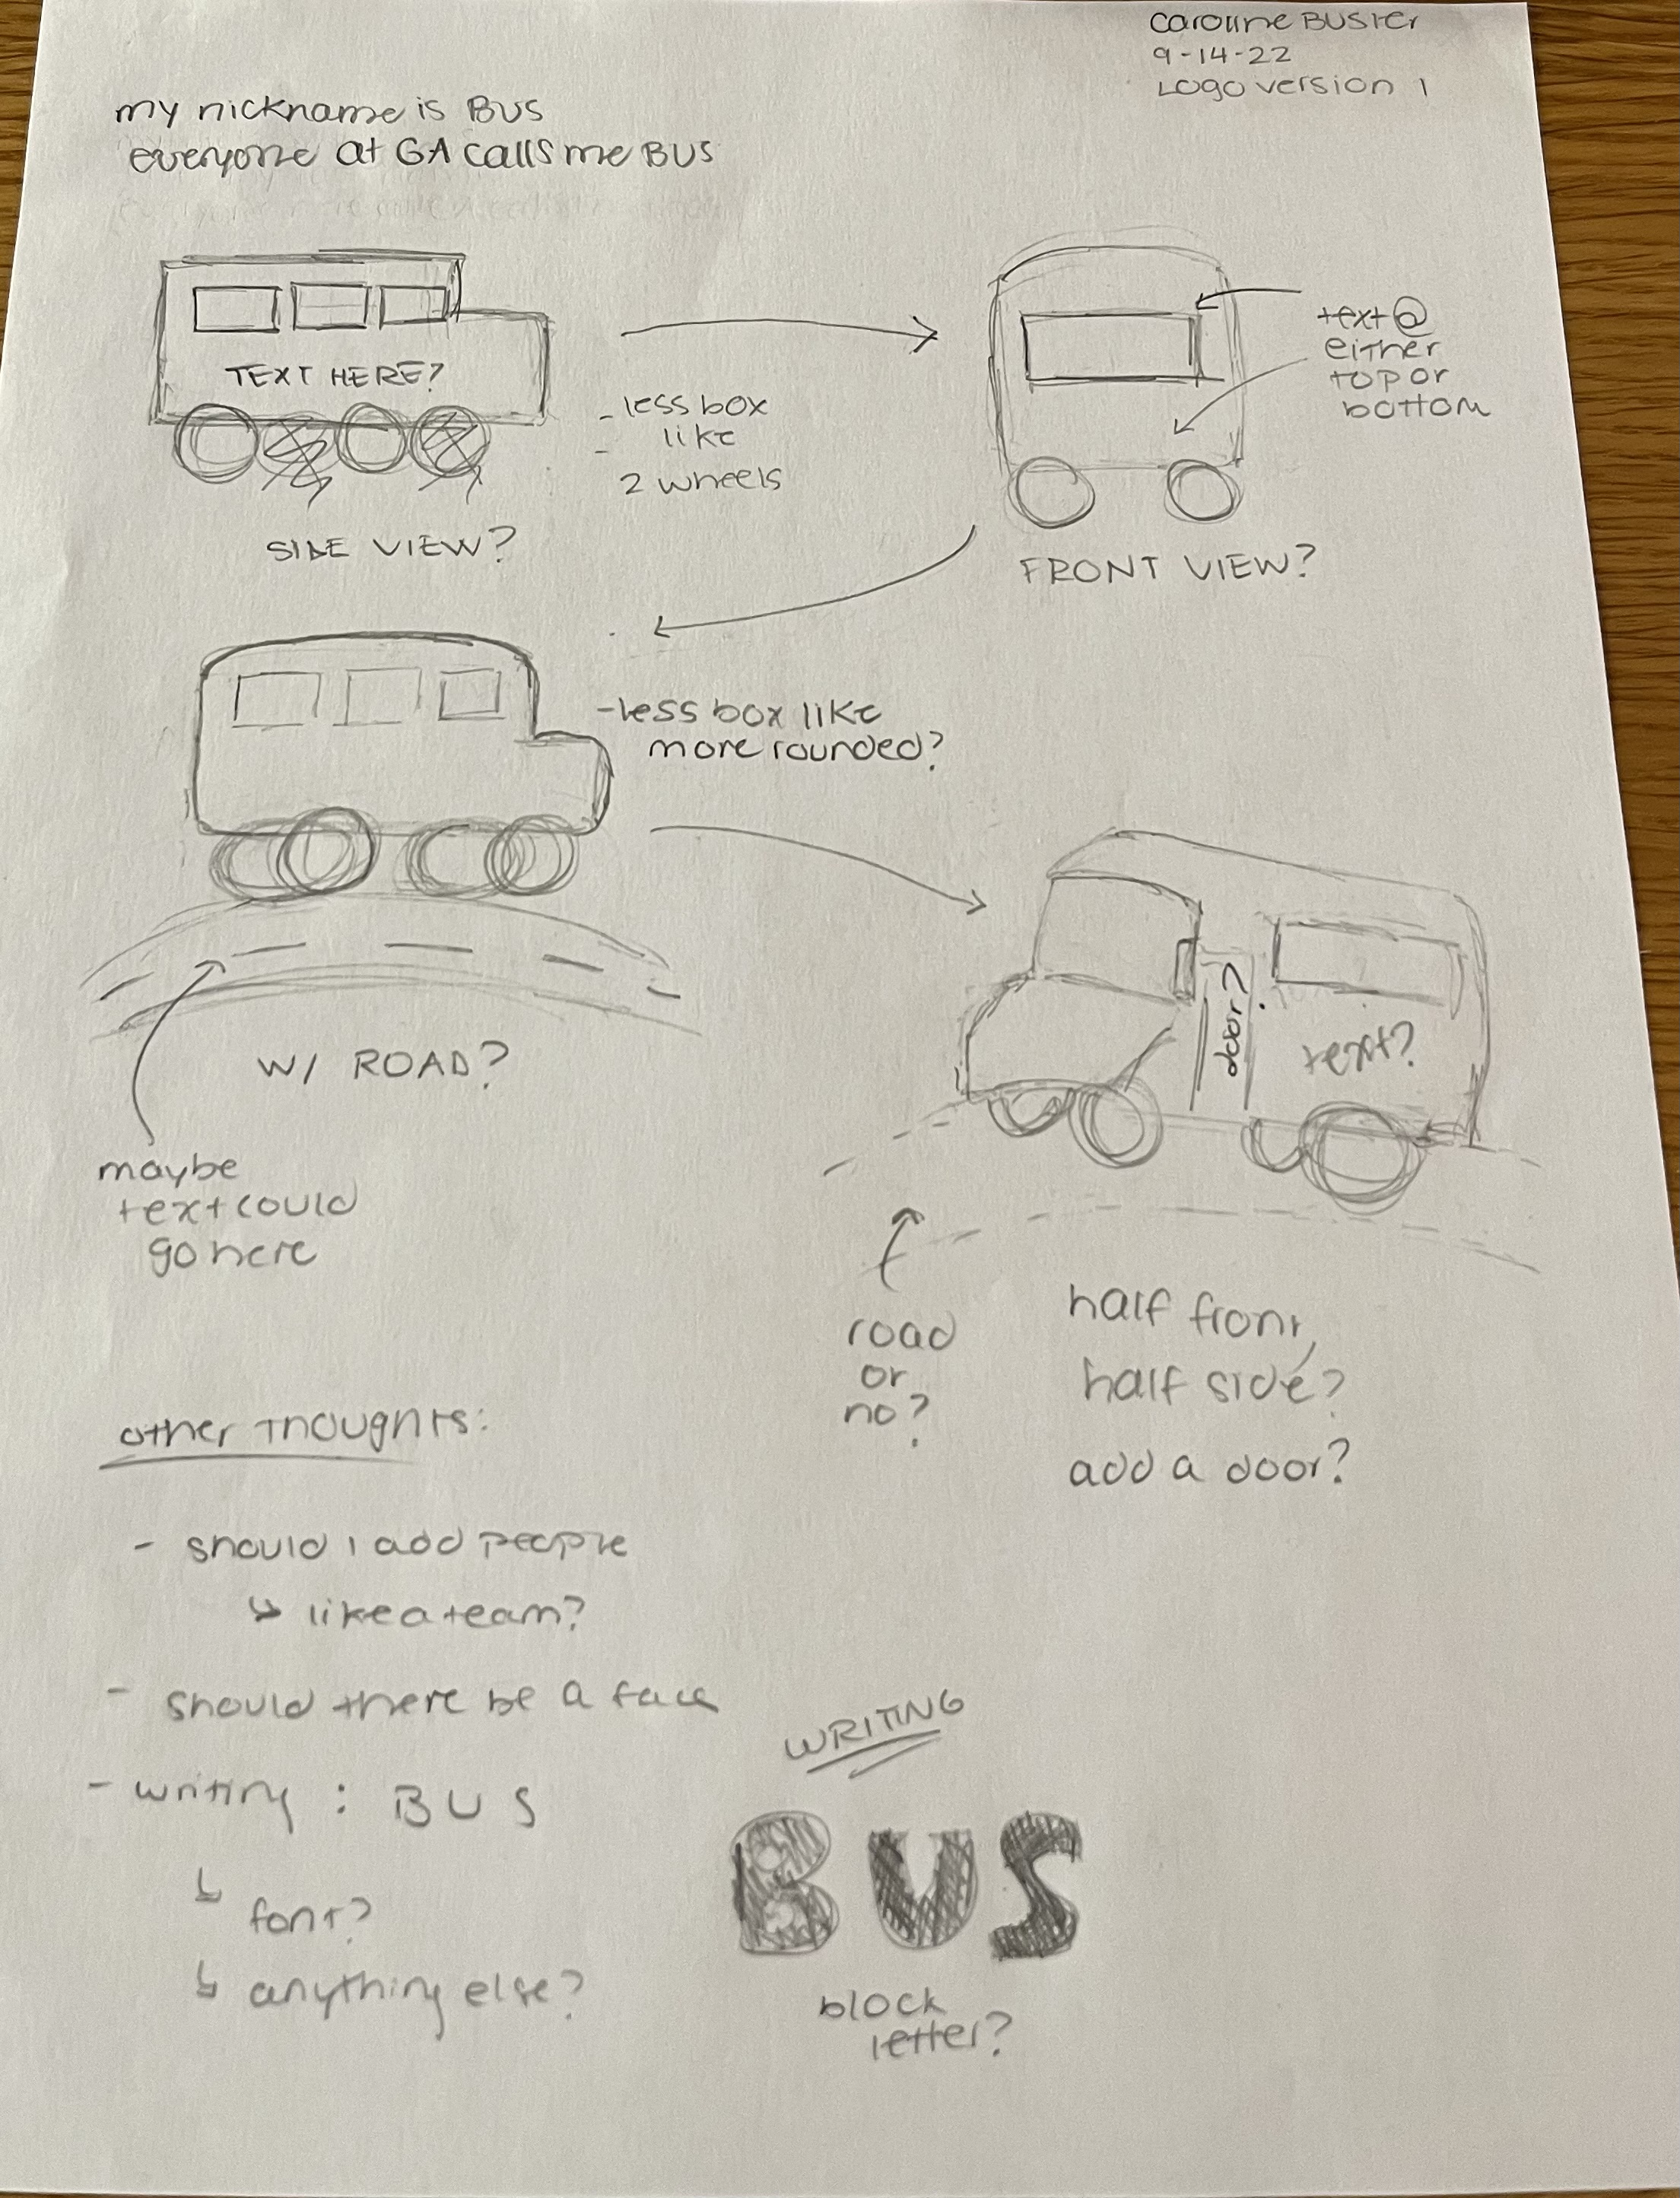 Caroline BUSTER
9-14-22
Logo version 1
my nickname is BUS
everyone at GA calls me BUS
TEXT HERE?
SIDE VIEW?
- less box
like
- 2 wheels
text @
either
top or
bottom
FRONT VIEW?
- less box like
more rounded?
W/ ROAD?
maybe
text could
go here
door?
text?
road
or
no?
half front,
half side?
add a door?
other thoughts:
- should I add people
↳ like a team?
- should there be a face
- writing : BUS
↳ font?
↳ anything else?
WRITING
BUS
block
letter?